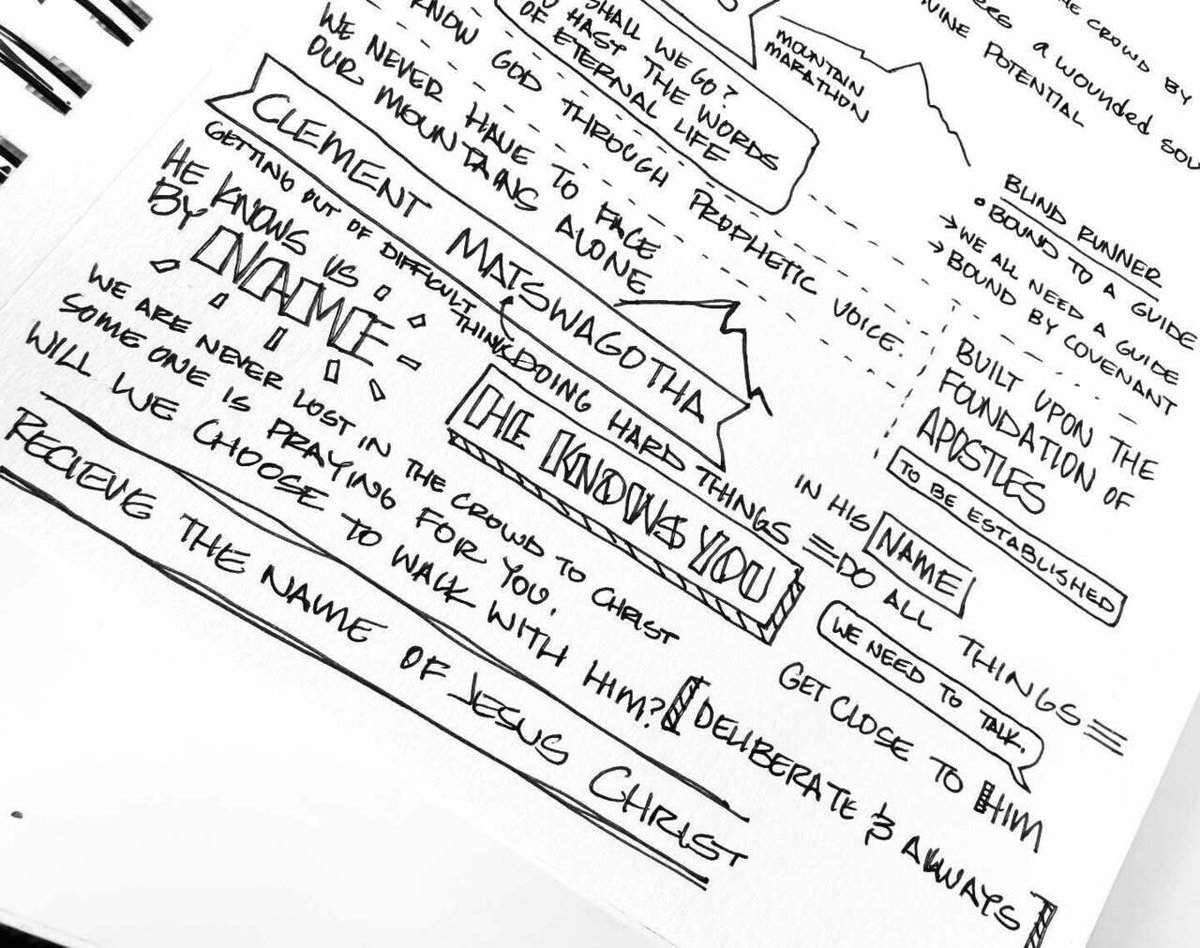 SHALL WE GO?
HAST THE WORDS
OF ETERNAL LIFE
KNOW GOD THROUGH PROPHETIC VOICE.
WE NEVER HAVE TO FACE
OUR MOUNTAINS ALONE
MOUNTAIN
MARATHON
THE CROWD BY
A WOUNDED SOUL
POTENTIAL
BLIND RUNNER
• BOUND TO A GUIDE
→ WE ALL NEED A GUIDE
→ BOUND BY COVENANT
BUILT UPON THE
FOUNDATION OF
APOSTLES
TO BE ESTABLISHED
CLEMENT MATSWAGOTHA
GETTING OUT OF DIFFICULT THINGS
DOING HARD THINGS
HE KNOWS US
BY NAME
HE KNOWS YOU
WE ARE NEVER LOST IN THE CROWD TO CHRIST
SOME ONE IS PRAYING FOR YOU.
WILL WE CHOOSE TO WALK WITH HIM?
RECIEVE THE NAME OF JESUS CHRIST
IN HIS NAME
DO ALL THINGS
WE NEED TO TALK.
GET CLOSE TO HIM
[DELIBERATE & ALWAYS]